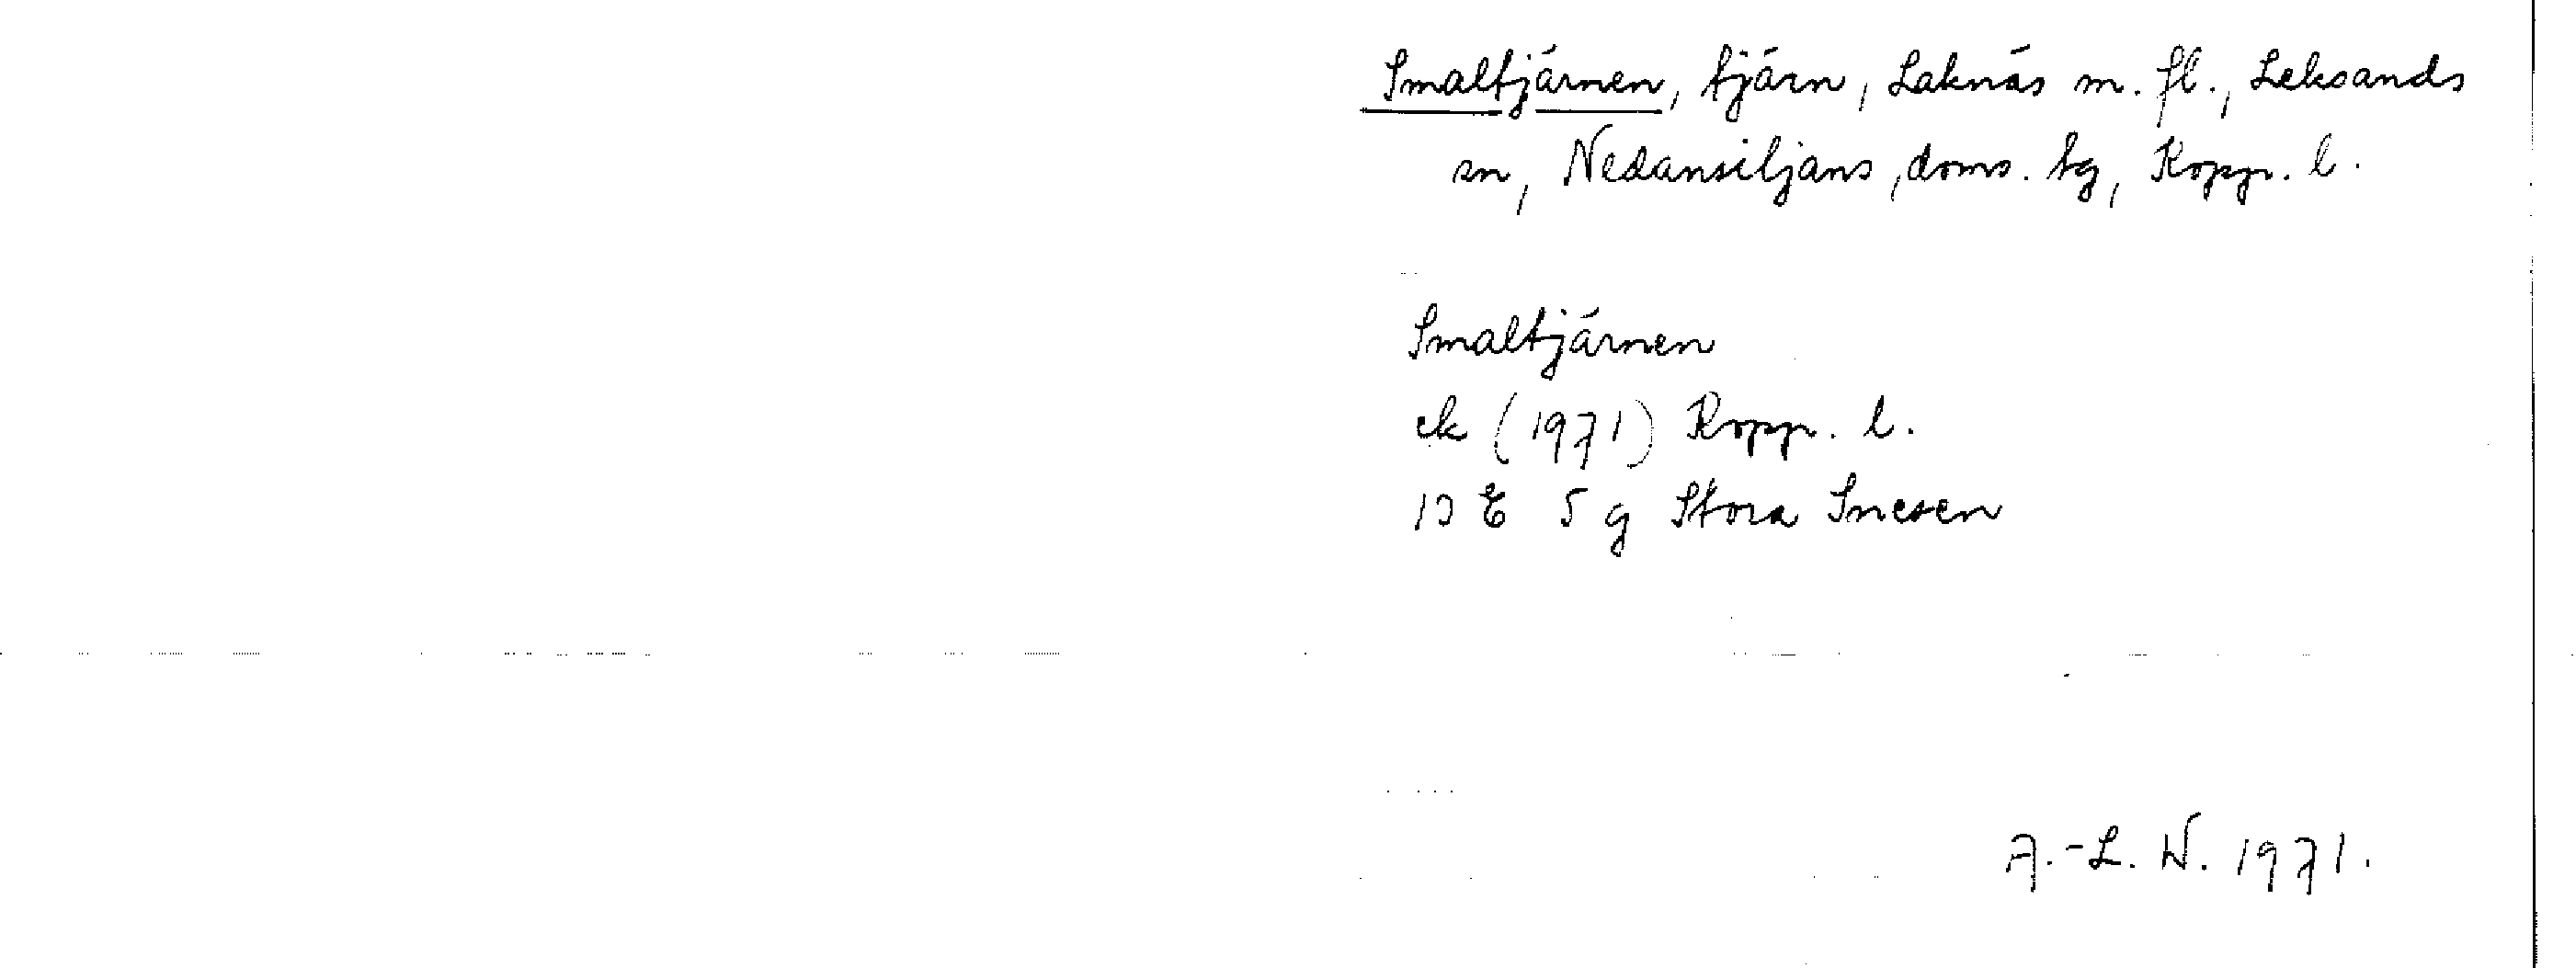 Smaltjärnen, tjärn, Laknäs m. fl., Leksands
sn, Nedansiljans, doms. tg, Kopp. l.
Smaltjärnen
ek (1971) Kopp. l.
13 E 5 g Stora Snesen
A.-L. W. 1971.